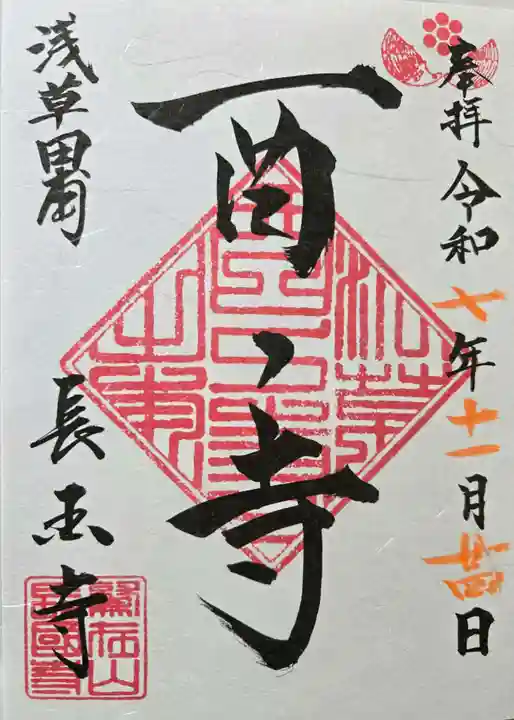 奉拝 令和七年十一月廿四日
酉之寺
浅草田甫
長国寺
鷲在山
長國寺